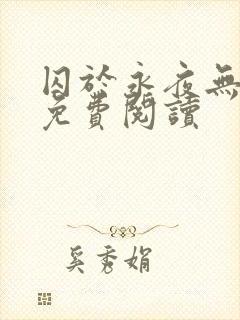 囚於永夜無
免費閱讀
奚秀娟